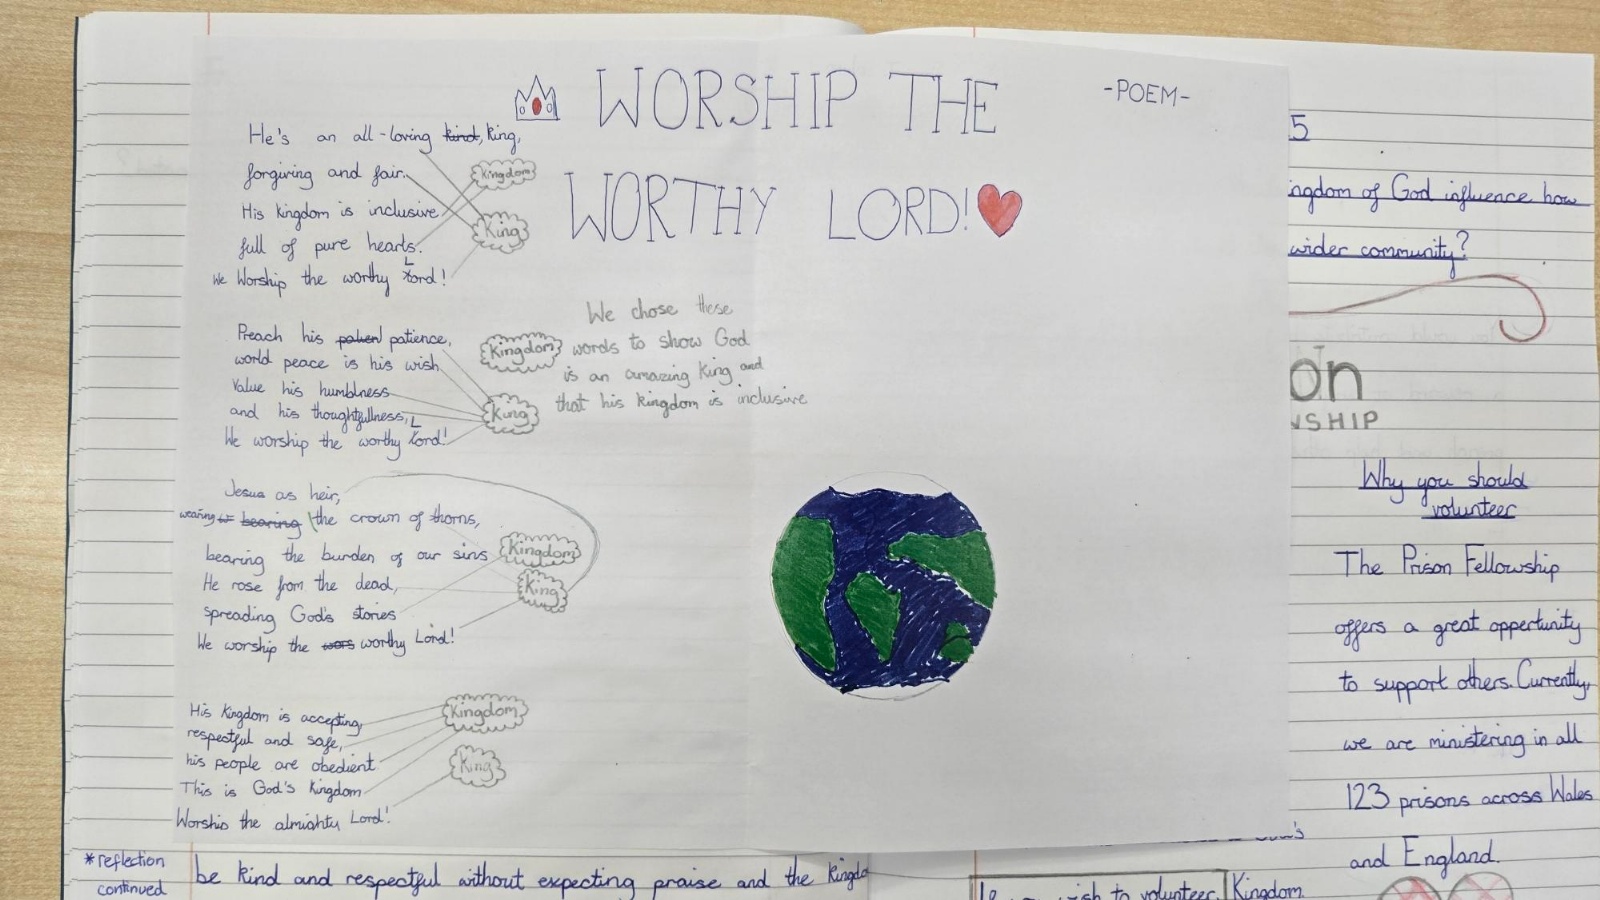 WORSHIP THE
-POEM-
WORTHY LORD!
He's an all-loving kind, king,
forgiving and fair.
His kingdom is inclusive
full of pure hearts.
We Worship the worthy Lord!
Kingdom
King
Preach his patience,
world peace is his wish
Value his humblness
and his thoughtfullness,
We worship the worthy Lord!
Kingdom
King
We chose these
words to show God
is an amazing King and
that his kingdom is inclusive
Jesus as heir,
wearing bearing the crown of thorns,
bearing the burden of our sins
He rose from the dead,
spreading God's stories
We worship the wors worthy Lord!
Kingdom
King
His Kingdom is accepting,
respectful and safe,
his people are obedient
This is God's Kingdom
Worship the almighty Lord!
Kingdom
King
*reflection
continued
be kind and respectful without expecting praise and the kingdo
5
ingdom of God influence how
wider community?
on
WSHIP
Why you should
volunteer
The Prison Fellowship
offers a great oppertunity
to support others. Currently,
we are ministering in all
123 prisons across Wales
and England.
wish to volunteer,
Kingdom